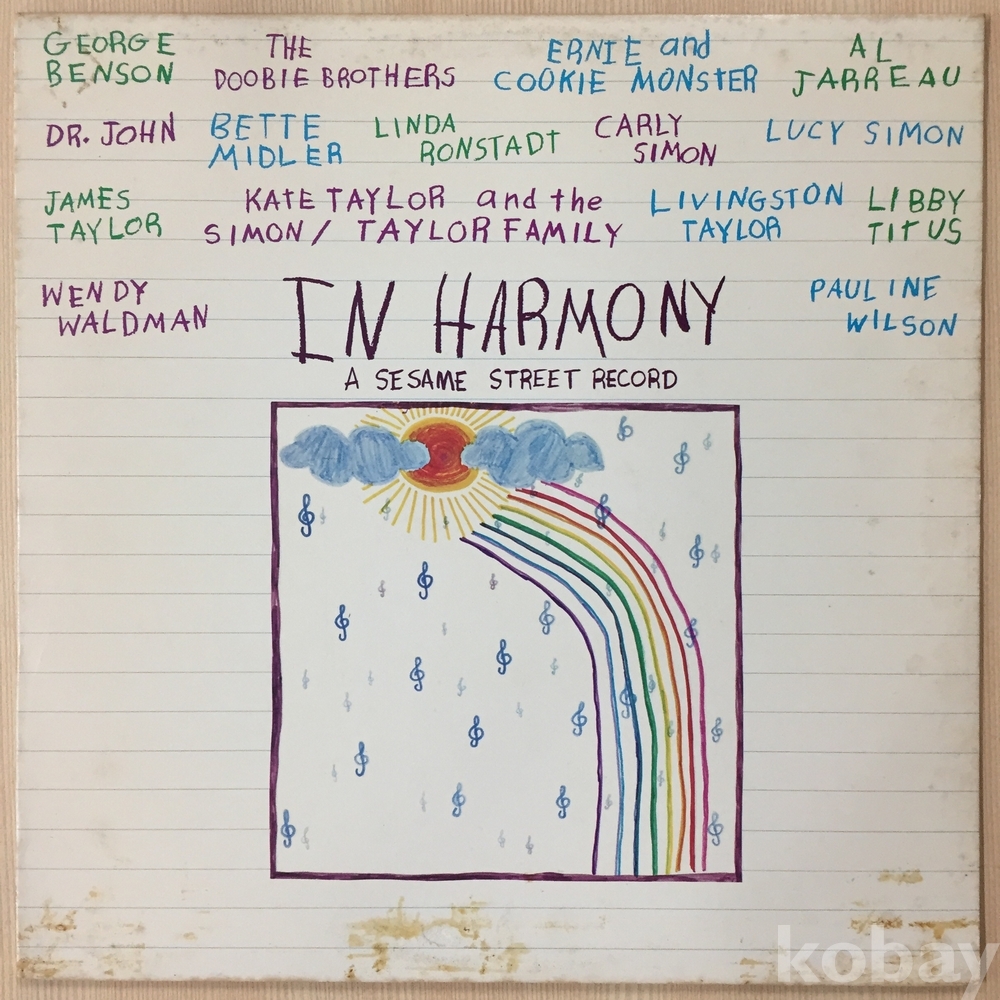 GEORGE BENSON
THE DOOBIE BROTHERS
ERNIE and COOKIE MONSTER
AL JARREAU
DR. JOHN
BETTE MIDLER
LINDA RONSTADT
CARLY SIMON
LUCY SIMON
JAMES TAYLOR
KATE TAYLOR and the
SIMON / TAYLOR FAMILY
LIVINGSTON TAYLOR
LIBBY TITUS
WENDY WALDMAN
PAULINE WILSON
IN HARMONY
A SESAME STREET RECORD
kobay